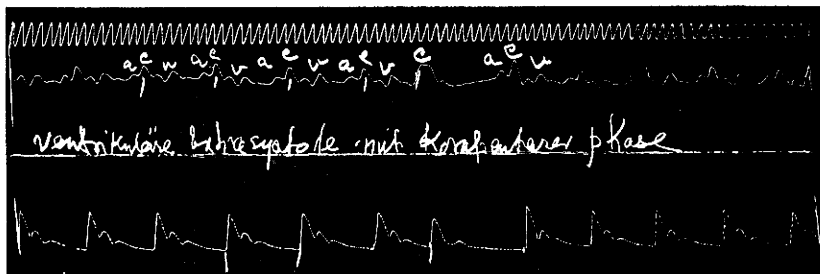 a c v a c v a c v a c v c a c v
ventrikuläre Extrasystole mit Kompensierter phase